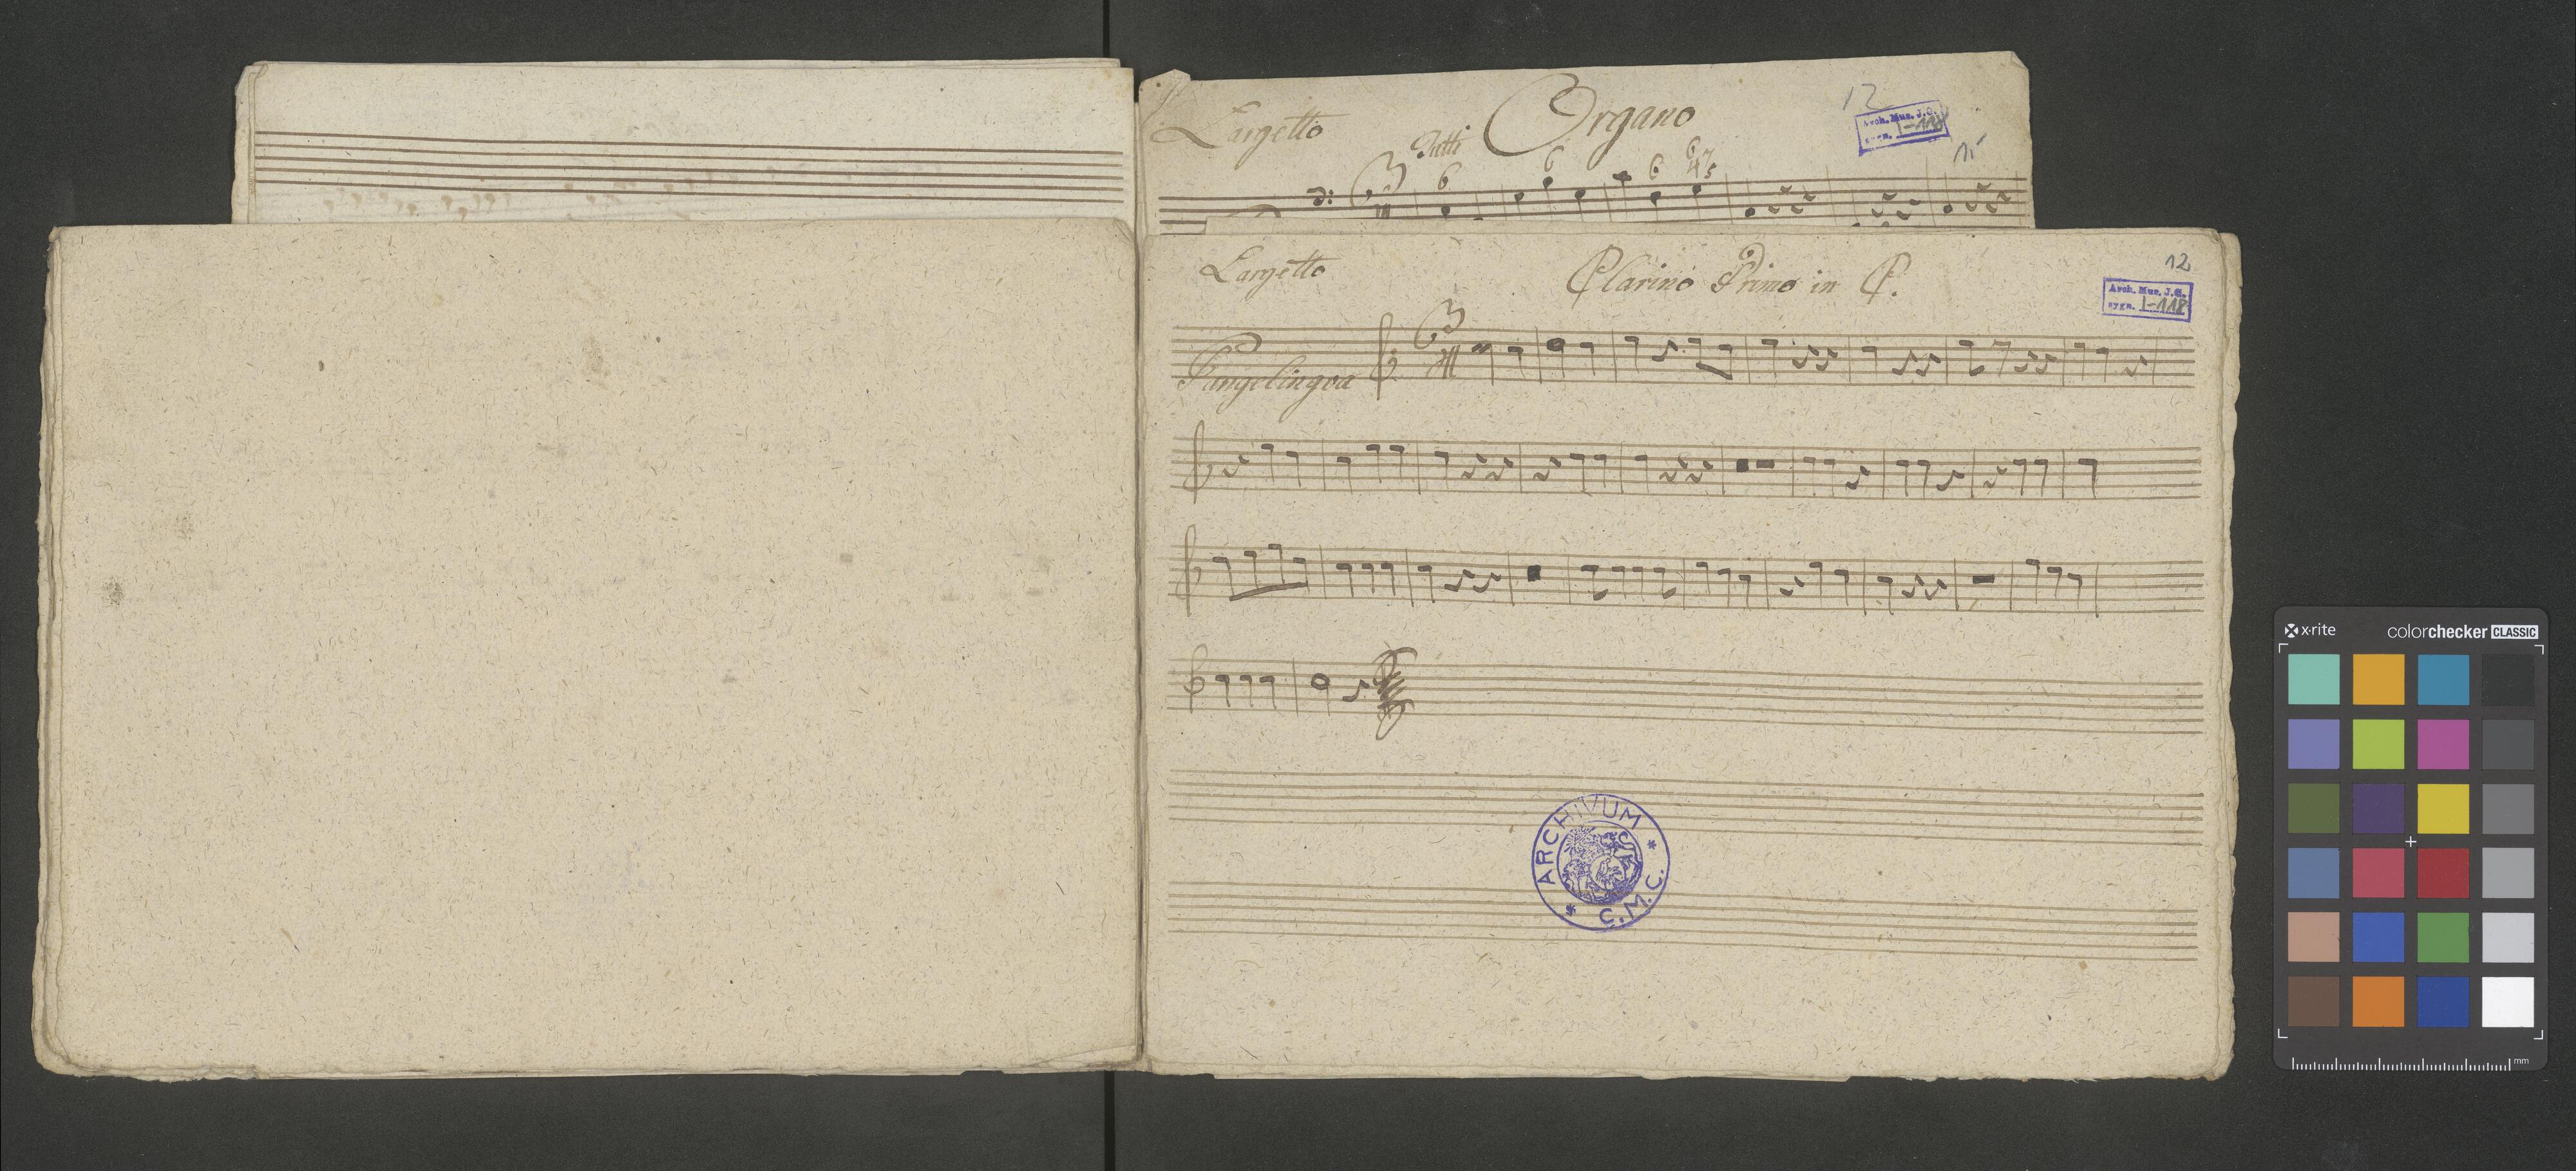 Largetto
Organo
12
Arch. Mus. J.G.
sygn. I-118
11
Tutti
6
6
6
6 7
4 5
3
Largetto
Clarino Primo in C.
12
Arch. Mus. J.G.
sygn. I-118
3
Pangelingva
ARCHIVUM * C.M.C. *
x·rite
colorchecker CLASSIC
mm